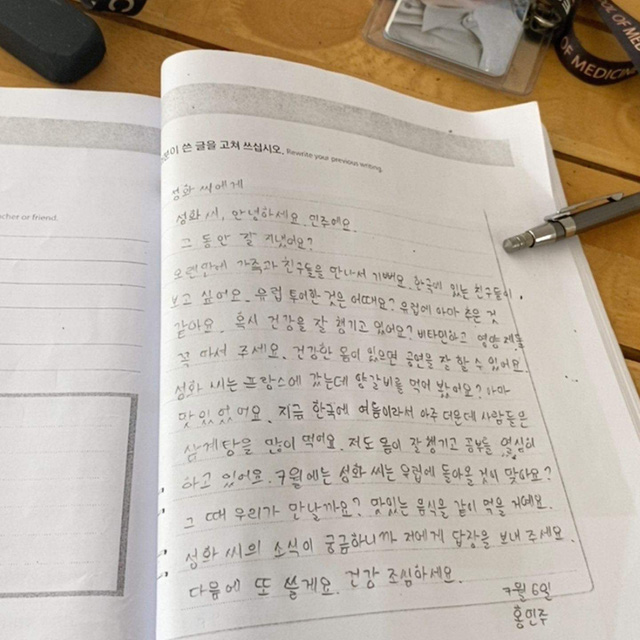 분이 쓴 글을 고쳐 쓰십시오. Rewrite your previous writing.
cher or friend.
OF MEDICINE
OF MEDICIN
성화 씨에게
성화 씨, 안녕하세요. 민주예요.
그 동안 잘 지냈어요?
오랜만에 가족과 친구들을 만나서 기뻐요. 한국에 있는 친구들이
보고 싶어요. 유럽 투어한 것은 어때요? 유럽에 아마 추운 것
같아요. 혹시 건강을 잘 챙기고 있어요? 비타민하고 영양제를
꼭 따서 주세요. 건강한 몸이 있으면 공연을 잘 할 수 있어요.
성화 씨는 프랑스에 갔는데 양갈비를 먹어 봤어요? 아마
맛있었어요. 지금 한국에 여름이라서 아주 더운데 사람들은
삼계탕을 많이 먹어요. 저도 몸이 잘 챙기고 공부를 열심히
하고 있어요. 7월에는 성화 씨는 유럽에 돌아올 것이 맞아요?
그 때 우리가 만날까요? 맛있는 음식을 같이 먹을 거예요.
성화 씨의 소식이 궁금하니까 저에게 답장을 보내 주세요.
다음에 또 쓸게요. 건강 조심하세요.
7월 6일
홍민주